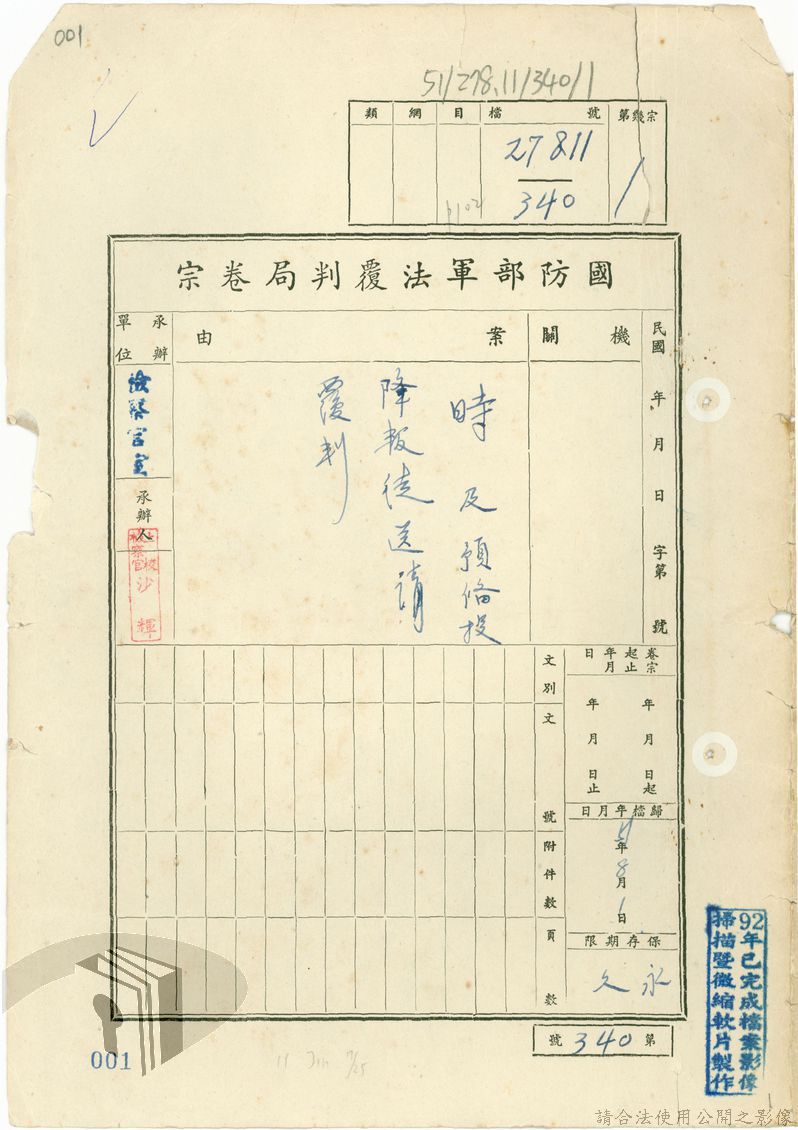 001
51/278.11/340/1
類 綱 目 檔號 第幾宗
27811
340
1
國防部軍法覆判局卷宗
民國 年 月 日 字第 號
機關
案由
時 及預備投
降叛徒送請
覆判
承辦單位
檢察官室
承辦人
檢察官
沙輝
卷宗起止年月日
年 月 日起
年 月 日止
歸檔年月日
51年8月1日
保存期限
永久
文別
文號
附件數
頁數
第340號
92年已完成檔案影像
掃描暨微縮軟片製作
001
請合法使用公開之影像